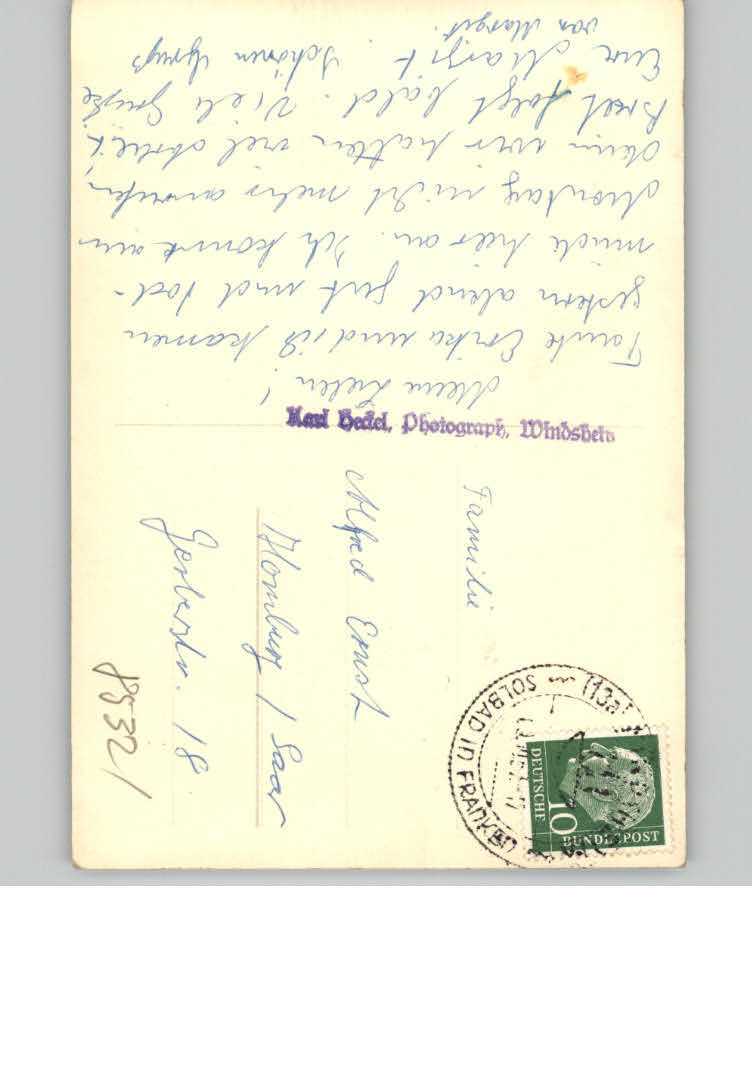 Meine Lieben!
Tante Erika und ich kamen
gestern abend gut und tod-
müde hier an. Ich konnte am
Montag nicht mehr anrufen,
denn wir hatten viel Arbeit.
Brief folgt bald. Viele Grüße
Eure Margit. Schönen Gruß
von Margit.
Karl Heckel, Photograph, Windsheim
Familie
Alfred Ernst
Homburg / Saar
Gerberstr. 18
85321
(13a)
SOLBAD ID FRANKEN
DEUTSCHE
BUNDESPOST
10